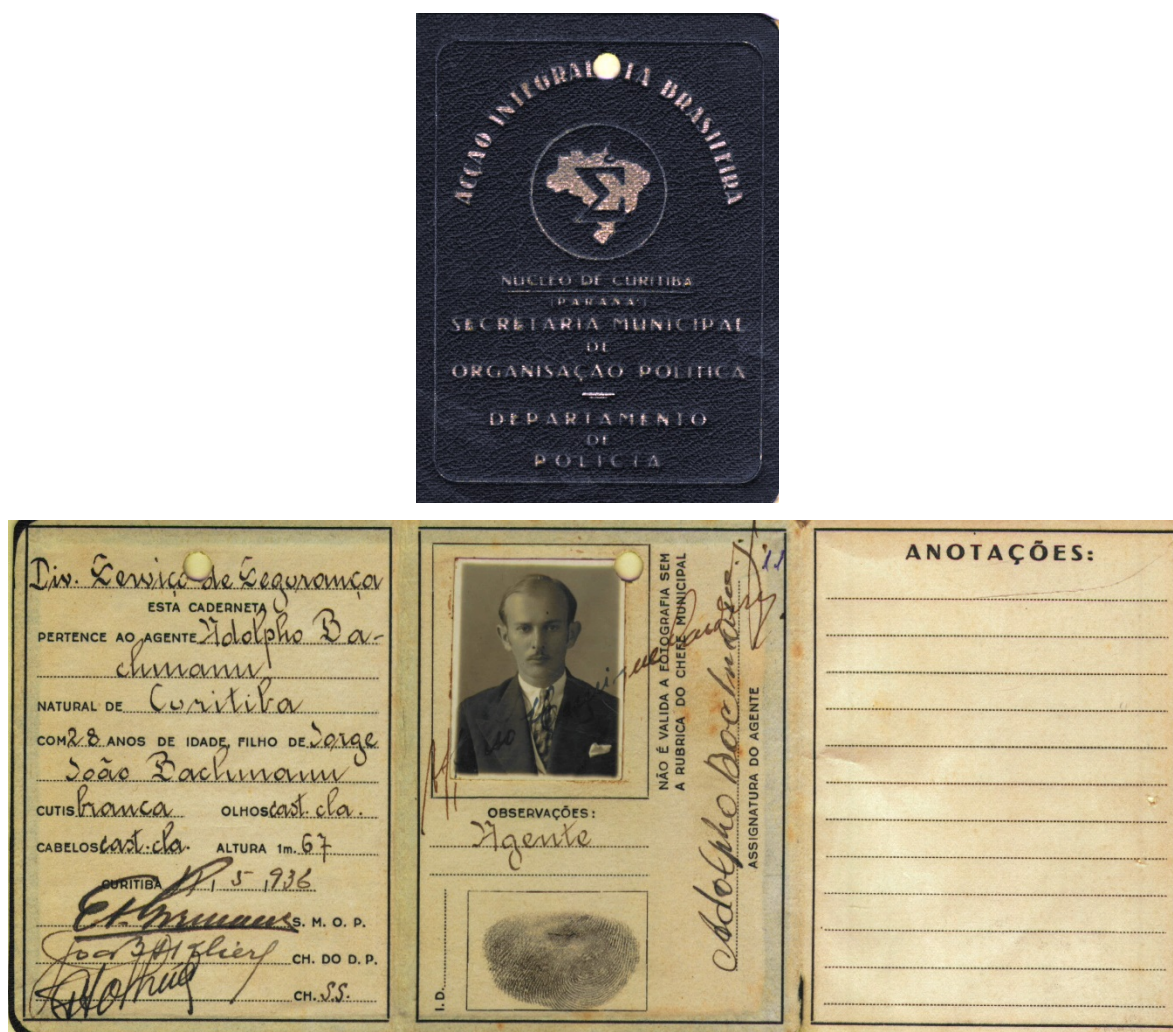 ACÇÃO INTEGRALISTA BRASILEIRA
Σ
NUCLEO DE CURITIBA
(PARANÁ)
SECRETARIA MUNICIPAL
DE
ORGANISAÇÃO POLITICA
DEPARTAMENTO
DE
POLICIA
Div. Serviço de Segurança
ESTA CADERNETA
PERTENCE AO AGENTE Adolpho Ba-
chmann
NATURAL DE Curitiba
COM 28 ANOS DE IDADE, FILHO DE Jorge
João Bachmann
CUTIS branca OLHOS cast. cla.
CABELOS cast. cla. ALTURA 1m. 67
CURITIBA 5, 936
S. M. O. P.
CH. DO D. P.
CH. S.S.
NÃO É VALIDA A FOTOGRAFIA SEM
A RUBRICA DO CHEFE MUNICIPAL
OBSERVAÇÕES:
Agente
I. D.
Adolpho Bachmann
ASSIGNATURA DO AGENTE
ANOTAÇÕES: